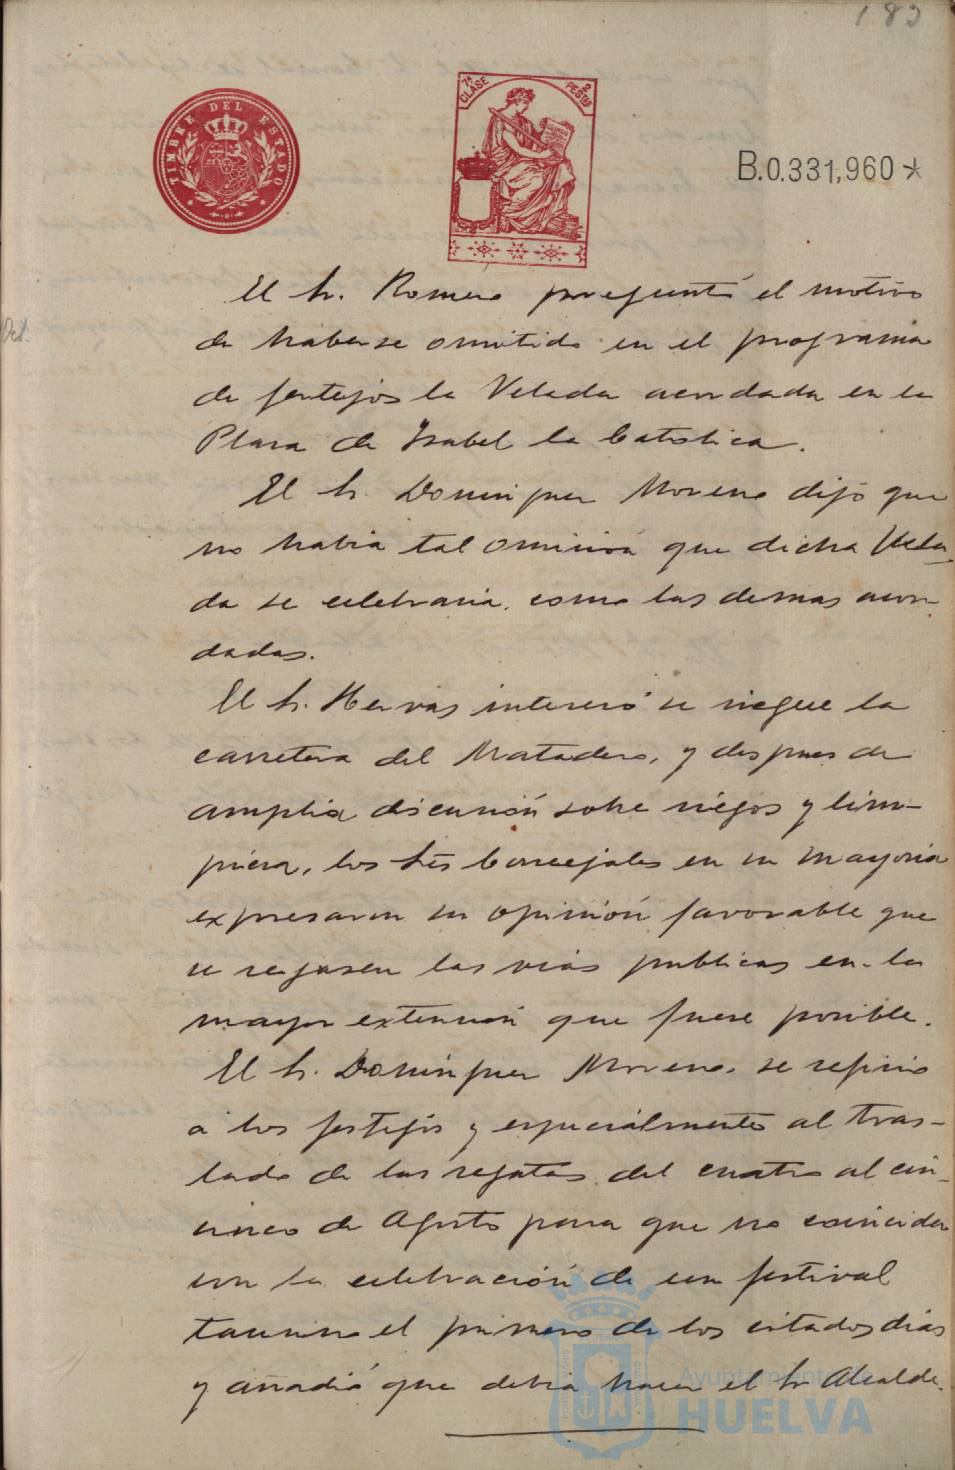 182
TIMBRE DEL ESTADO
7ª CLASE 2 PESTAS
B.0.331,960*
El Sr. Romero preguntó el motivo
de haberse omitido en el programa
de festejos la Velada acordada en la
Plaza de Isabel la Catolica.
El Sr. Dominguez Moreno dijo que
no habia tal omision que dicha Vela-
da se celebraria como las demas acor-
dadas.
El Sr. Hervas interesó se riegue la
carretera del Matadero, y despues de
amplia discusión sobre riegos y lim-
pieza, los Srs Concejales en su mayoria
expresaron su opinión favorable que
se regasen las vias publicas en la
mayor extensión que fuese posible.
El Sr. Dominguez Moreno se refirio
a los festejos y especialmente al tras-
lado de las regatas del cuatro al cin-
cinco de Agosto para que no coincidan
con la celebración de un festival
taurino el primero de los citados dias
y añadió que debia hacer el Sr Alcalde
Ayuntamiento de
HUELVA